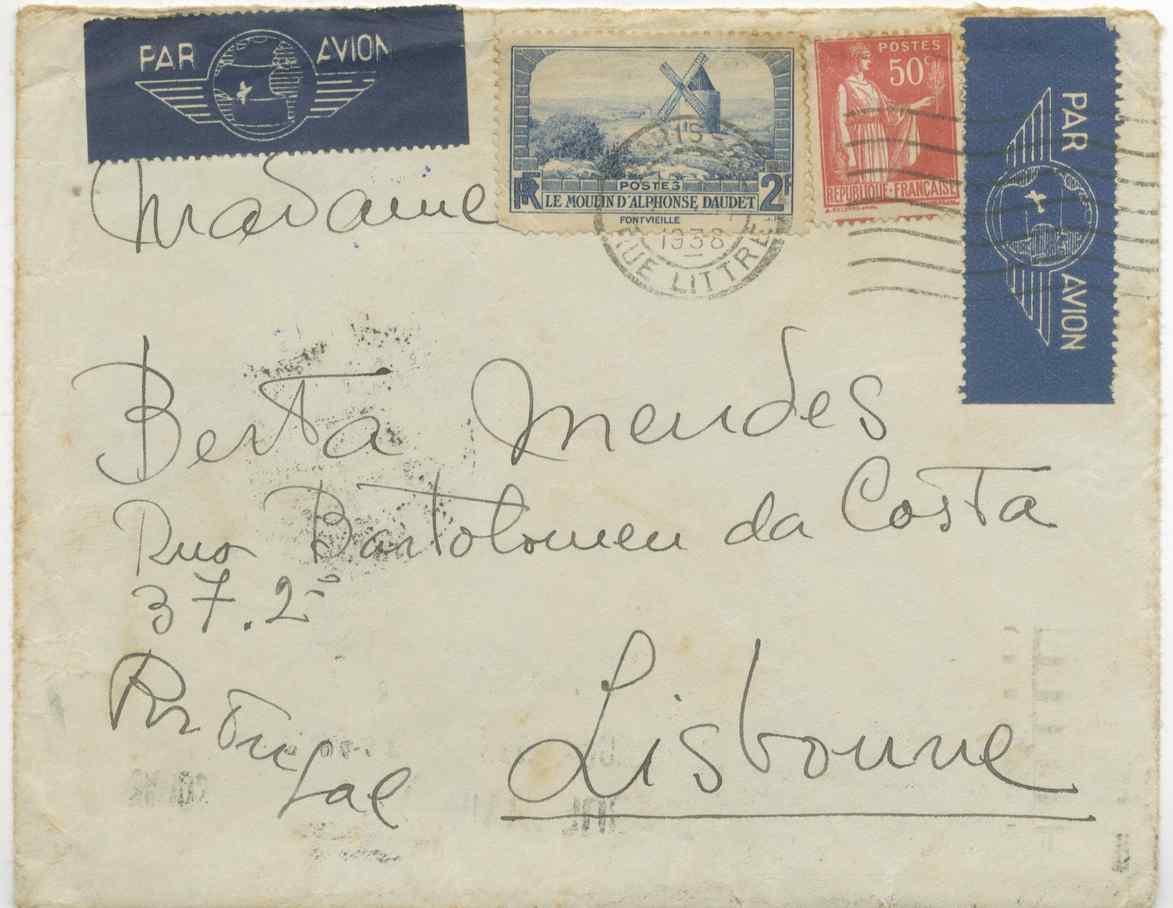 PAR AVION
POSTES
2F
LE MOULIN D'ALPHONSE DAUDET
FONTVIEILLE
RF
POSTES
50c
REPUBLIQUE-FRANÇAISE
PAR AVION
1938
RUE LITTRE
Madame
Berta Mendes
Rua Bartolomeu da Costa
37.2º
Portugal
Lisbonne